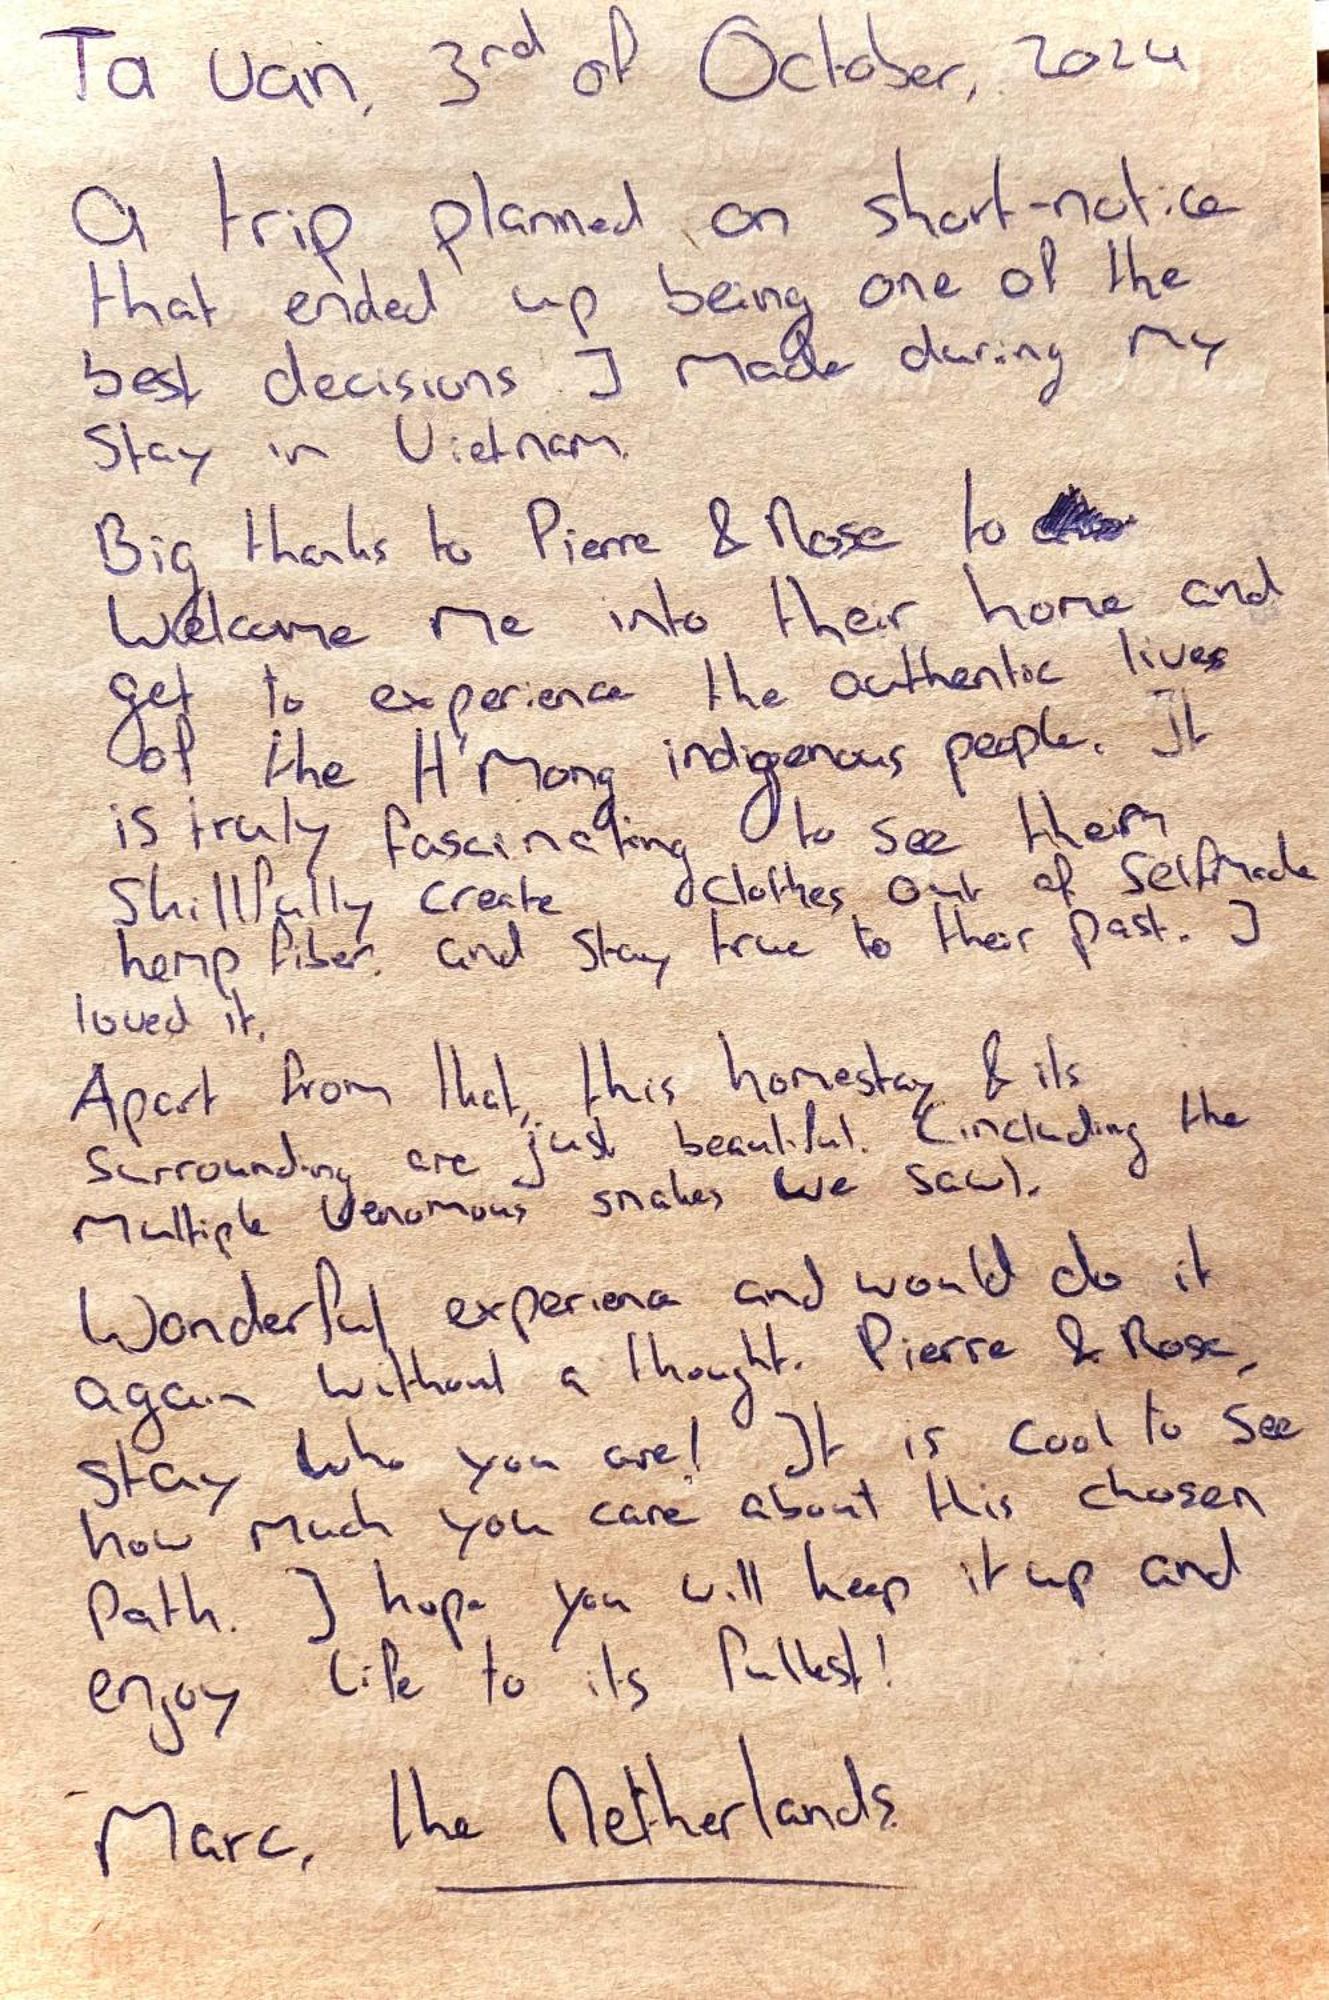 Ta Van, 3rd of October, 2024
A trip planned on short-notice
that ended up being one of the
best decisions I made during my
stay in Vietnam.
Big thanks to Pierre & Rose to
Welcome me into their home and
get to experience the authentic lives
of the H'Mong indigenous people. It
is truly fascinating to see them
Skillfully create clothes out of selfmade
hemp fiber. and stay true to their past. I
loved it.
Apart from that, this homestay & its
surrounding are just beautiful. (including the
multiple venomous snakes we saw).
Wonderful experience and would do it
again without a thought. Pierre & Rose,
stay who you are! It is cool to see
how much you care about this chosen
Path. I hope you will keep it up and
enjoy life to its fullest!
Marc, the Netherlands.